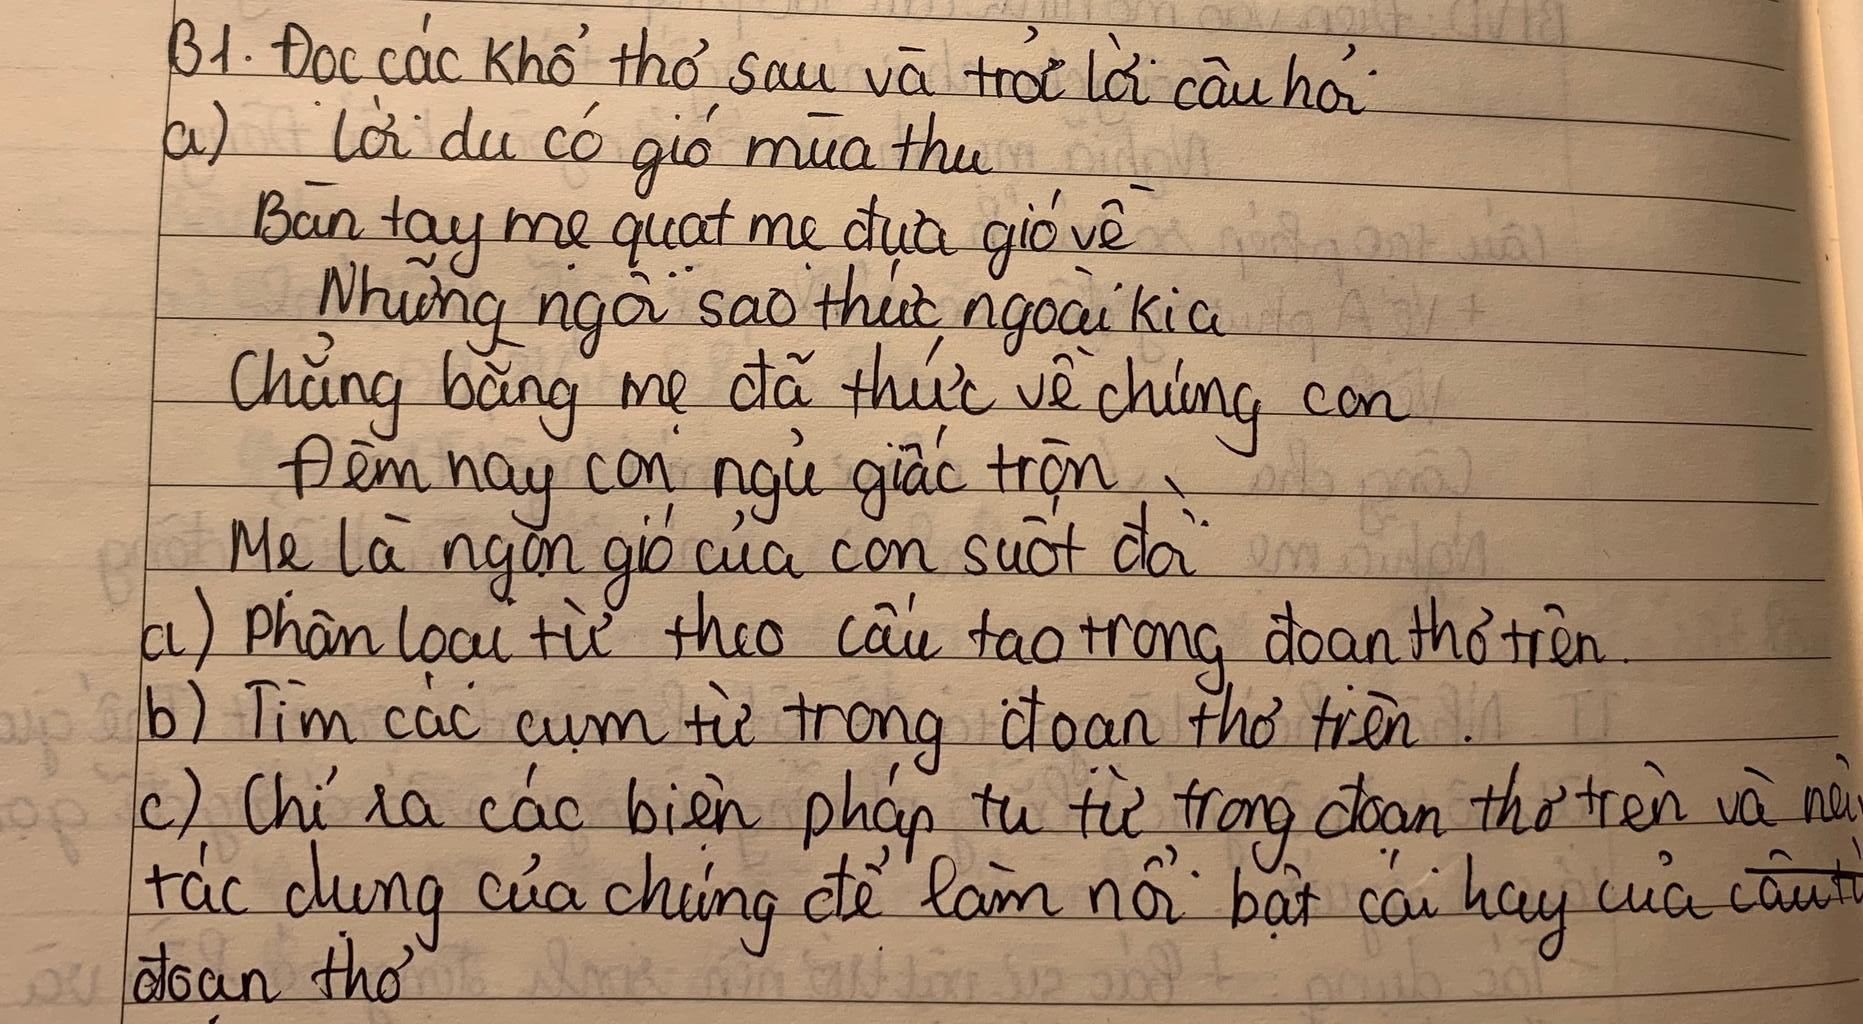 B1. Đọc các khổ thơ sau và trả lời câu hỏi
a) Lời du có gió mùa thu
Bàn tay mẹ quạt mẹ đưa gió về
Những ngôi sao thức ngoài kia
Chẳng bằng mẹ đã thức về chúng con
Đêm nay con ngủ giấc tròn
Mẹ là ngọn gió của con suốt đời
a) Phân loại từ theo cấu tạo trong đoạn thơ trên.
b) Tìm các cụm từ trong đoạn thơ trên.
c) Chỉ ra các biện pháp tu từ trong đoạn thơ trên và nêu
tác dụng của chúng để làm nổi bật cái hay của
đoạn thơ